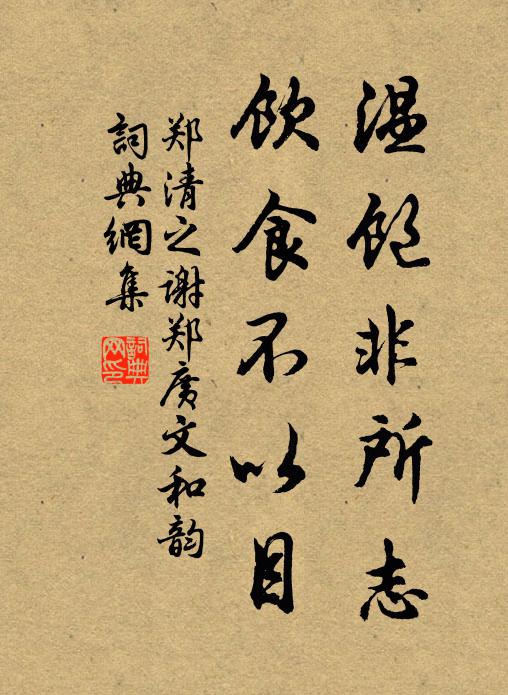 温饱非所志
饮食不以目
郑清之谢郑广文和韵
詞典網集
詞典网印